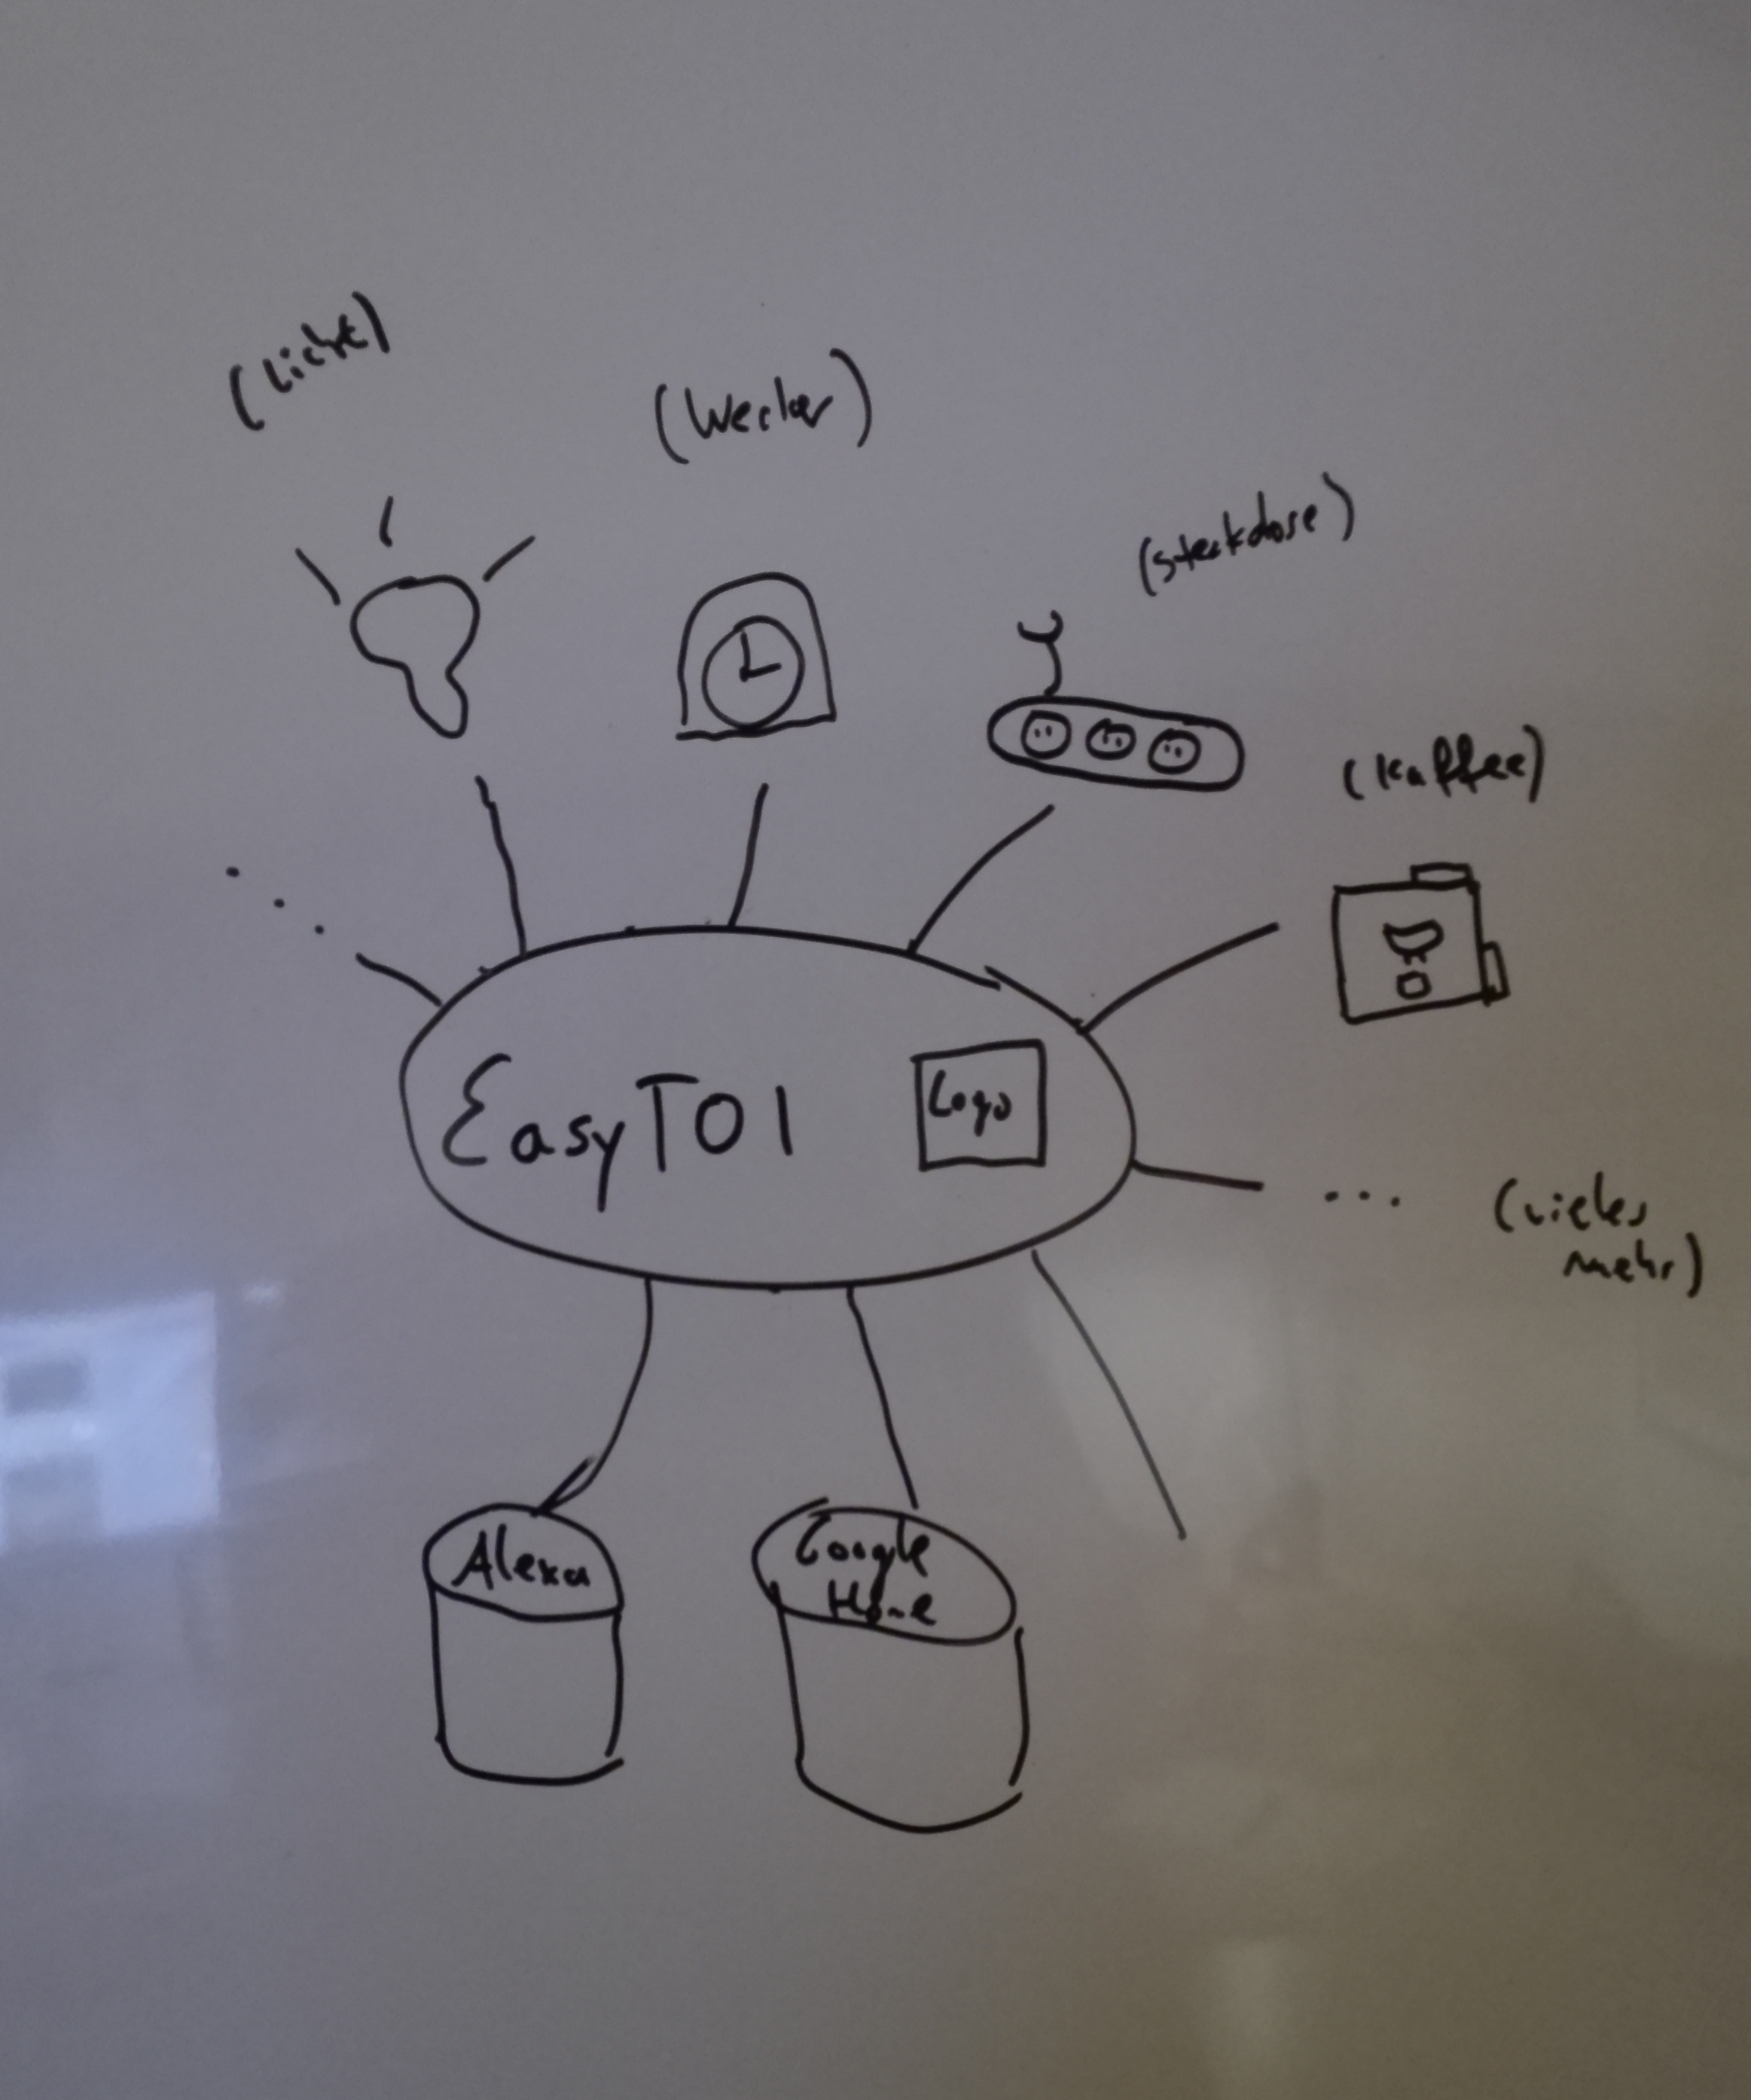 (Licht)
(Wecker)
(Steckdose)
(Kaffee)
EasyTOI
Logo
... (vieles
mehr)
Alexa
Google
Home